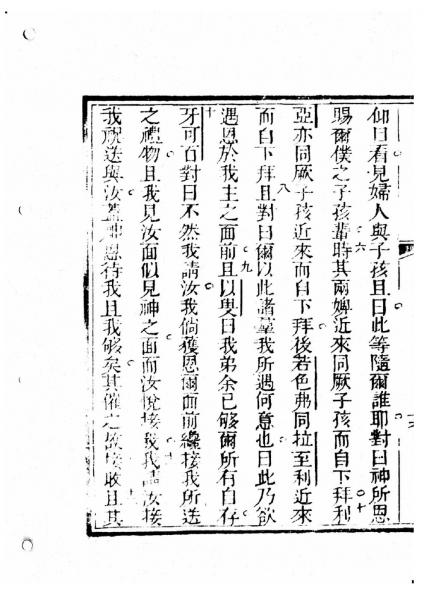 仰目看見婦人與子孩且曰此等隨爾誰耶對曰神所恩
賜爾僕之子孩輩時其兩婢近來同厥子孩而自下拜利
亞亦同厥子孩近來而自下拜後若色弗同拉至利近來
而自下拜且對曰爾以此諸羣我所遇何意也曰此乃欲
遇恩於我主之面前且以叟曰我弟余已够爾所有自存
牙可百對曰不然我請汝我倘獲恩爾面前纔接我所送
之禮物且我見汝面似見神之面而汝悅接我我請汝接
我祝送與汝蓋神恩待我且我够矣其催之故接收且其